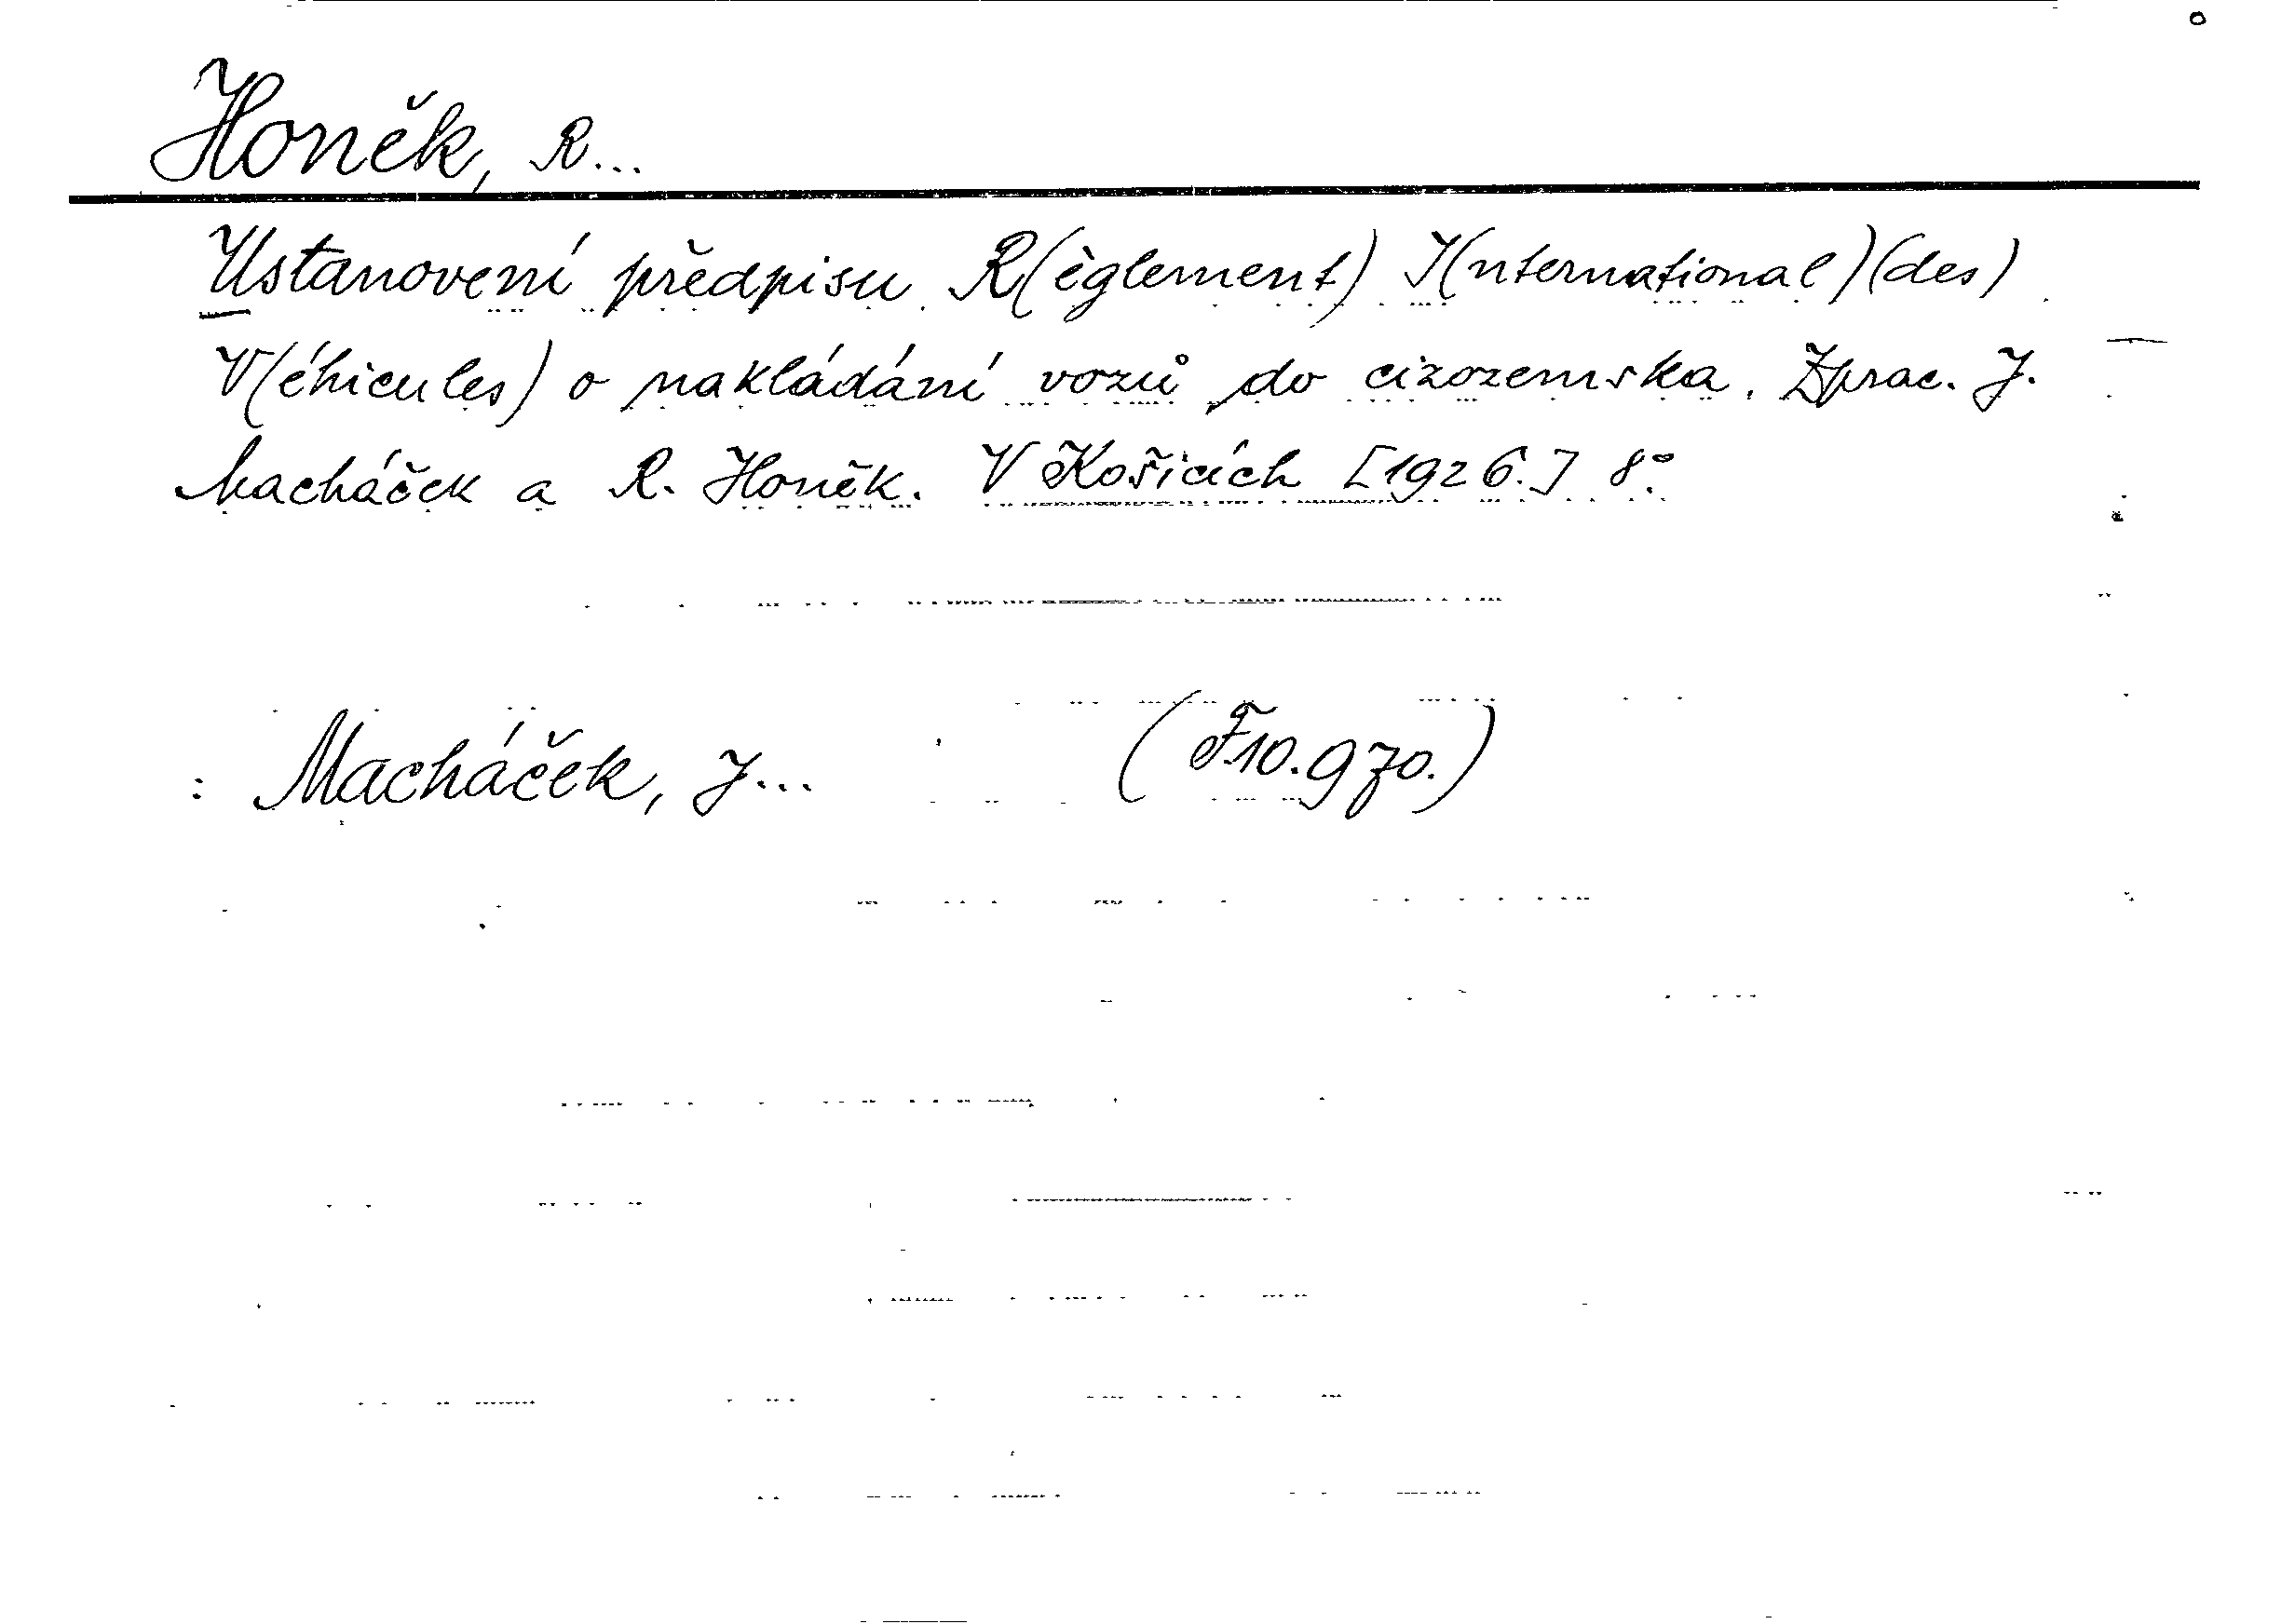 Honěk, R...
Ustanovení předpisu R(èglement) I(nternational)(des)
V(éhicules) o nakládání vozů do cizozemska. Zprac. J.
Macháček a R. Honěk. V Košicích [1926.] 8°.
: Macháček, J... (F10.970.)